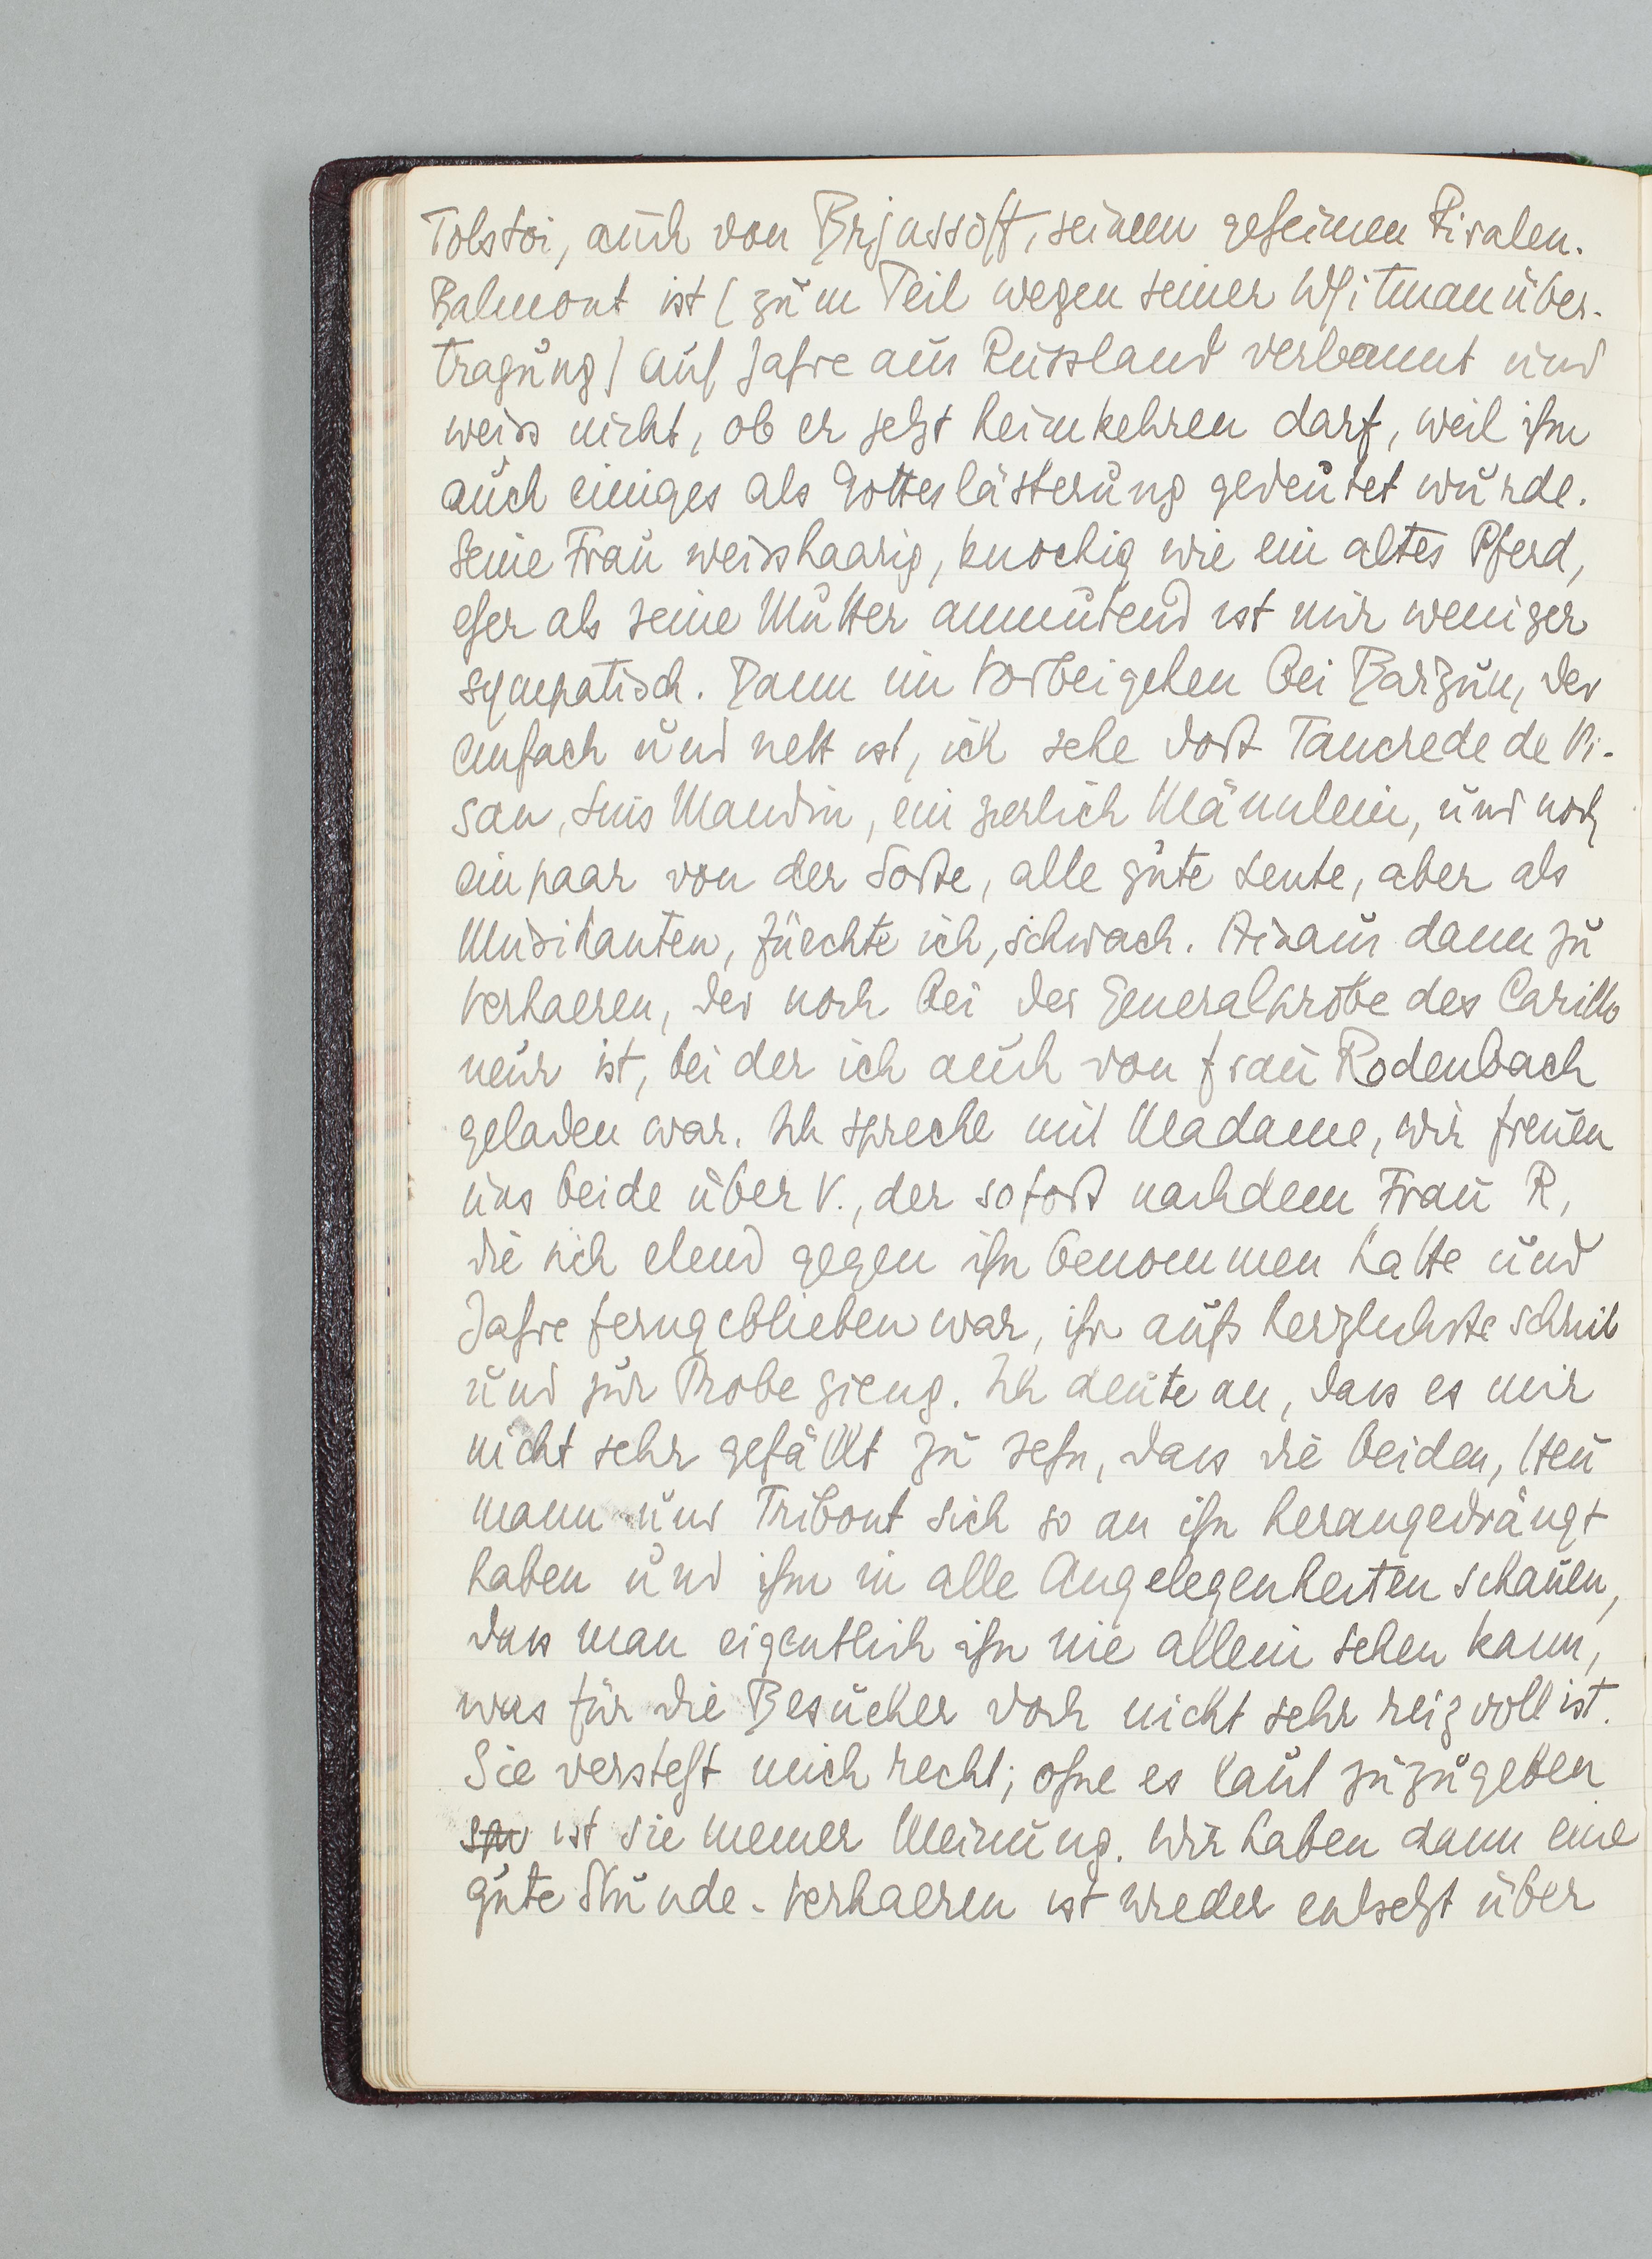 Tolstoi, auch von Brjussoff, seinem geheimen Rivalen.
Balmont ist (zum Teil wegen seiner Whitmanüber-
tragung) auf Jahre aus Russland verbannt und
weiss nicht, ob er jetzt heimkehren darf, weil ihm
auch einiges als Gotteslästerung gedeutet wurde.
Seine Frau weisshaarig, knochig wie ein altes Pferd,
eher als seine Mutter anmutend ist mir weniger
sympatisch. Dann im Vorbeigehen bei Barzun, der
einfach und nett ist, ich sehe dort Tancrede de Vi-
san, Luis Mandin, ein zierlich Männlein, und noch
ein paar von der Sorte, alle gute Leute, aber als
Musikanten, fürchte ich, schwach. Hinaus dann zu
Verhaeren, der noch bei der Generalprobe des Carillo
neur ist, bei der ich auch von Frau Rodenbach
geladen war. Ich spreche mit Madame, wir freuen
uns beide über V., der sofort nachdem Frau R,
die sich elend gegen ihn benommen hatte und
Jahre ferngeblieben war, ihr aufs herzlichste schrieb
und zur Probe gieng. Ich deute an, dass es mir
nicht sehr gefällt zu sehn, dass die beiden, Heu
mann und Tribout sich so an ihn herangedrängt
haben und ihm in alle Angelegenheiten schauen,
dass man eigentlich ihn nie allein sehen kann,
was für die Besucher doch nicht sehr reizvoll ist.
Sie versteht mich recht; ohne es laut zuzugeben
ist sie meiner Meinung. Wir haben dann eine
gute Stunde. Verhaeren ist wieder entsetzt über